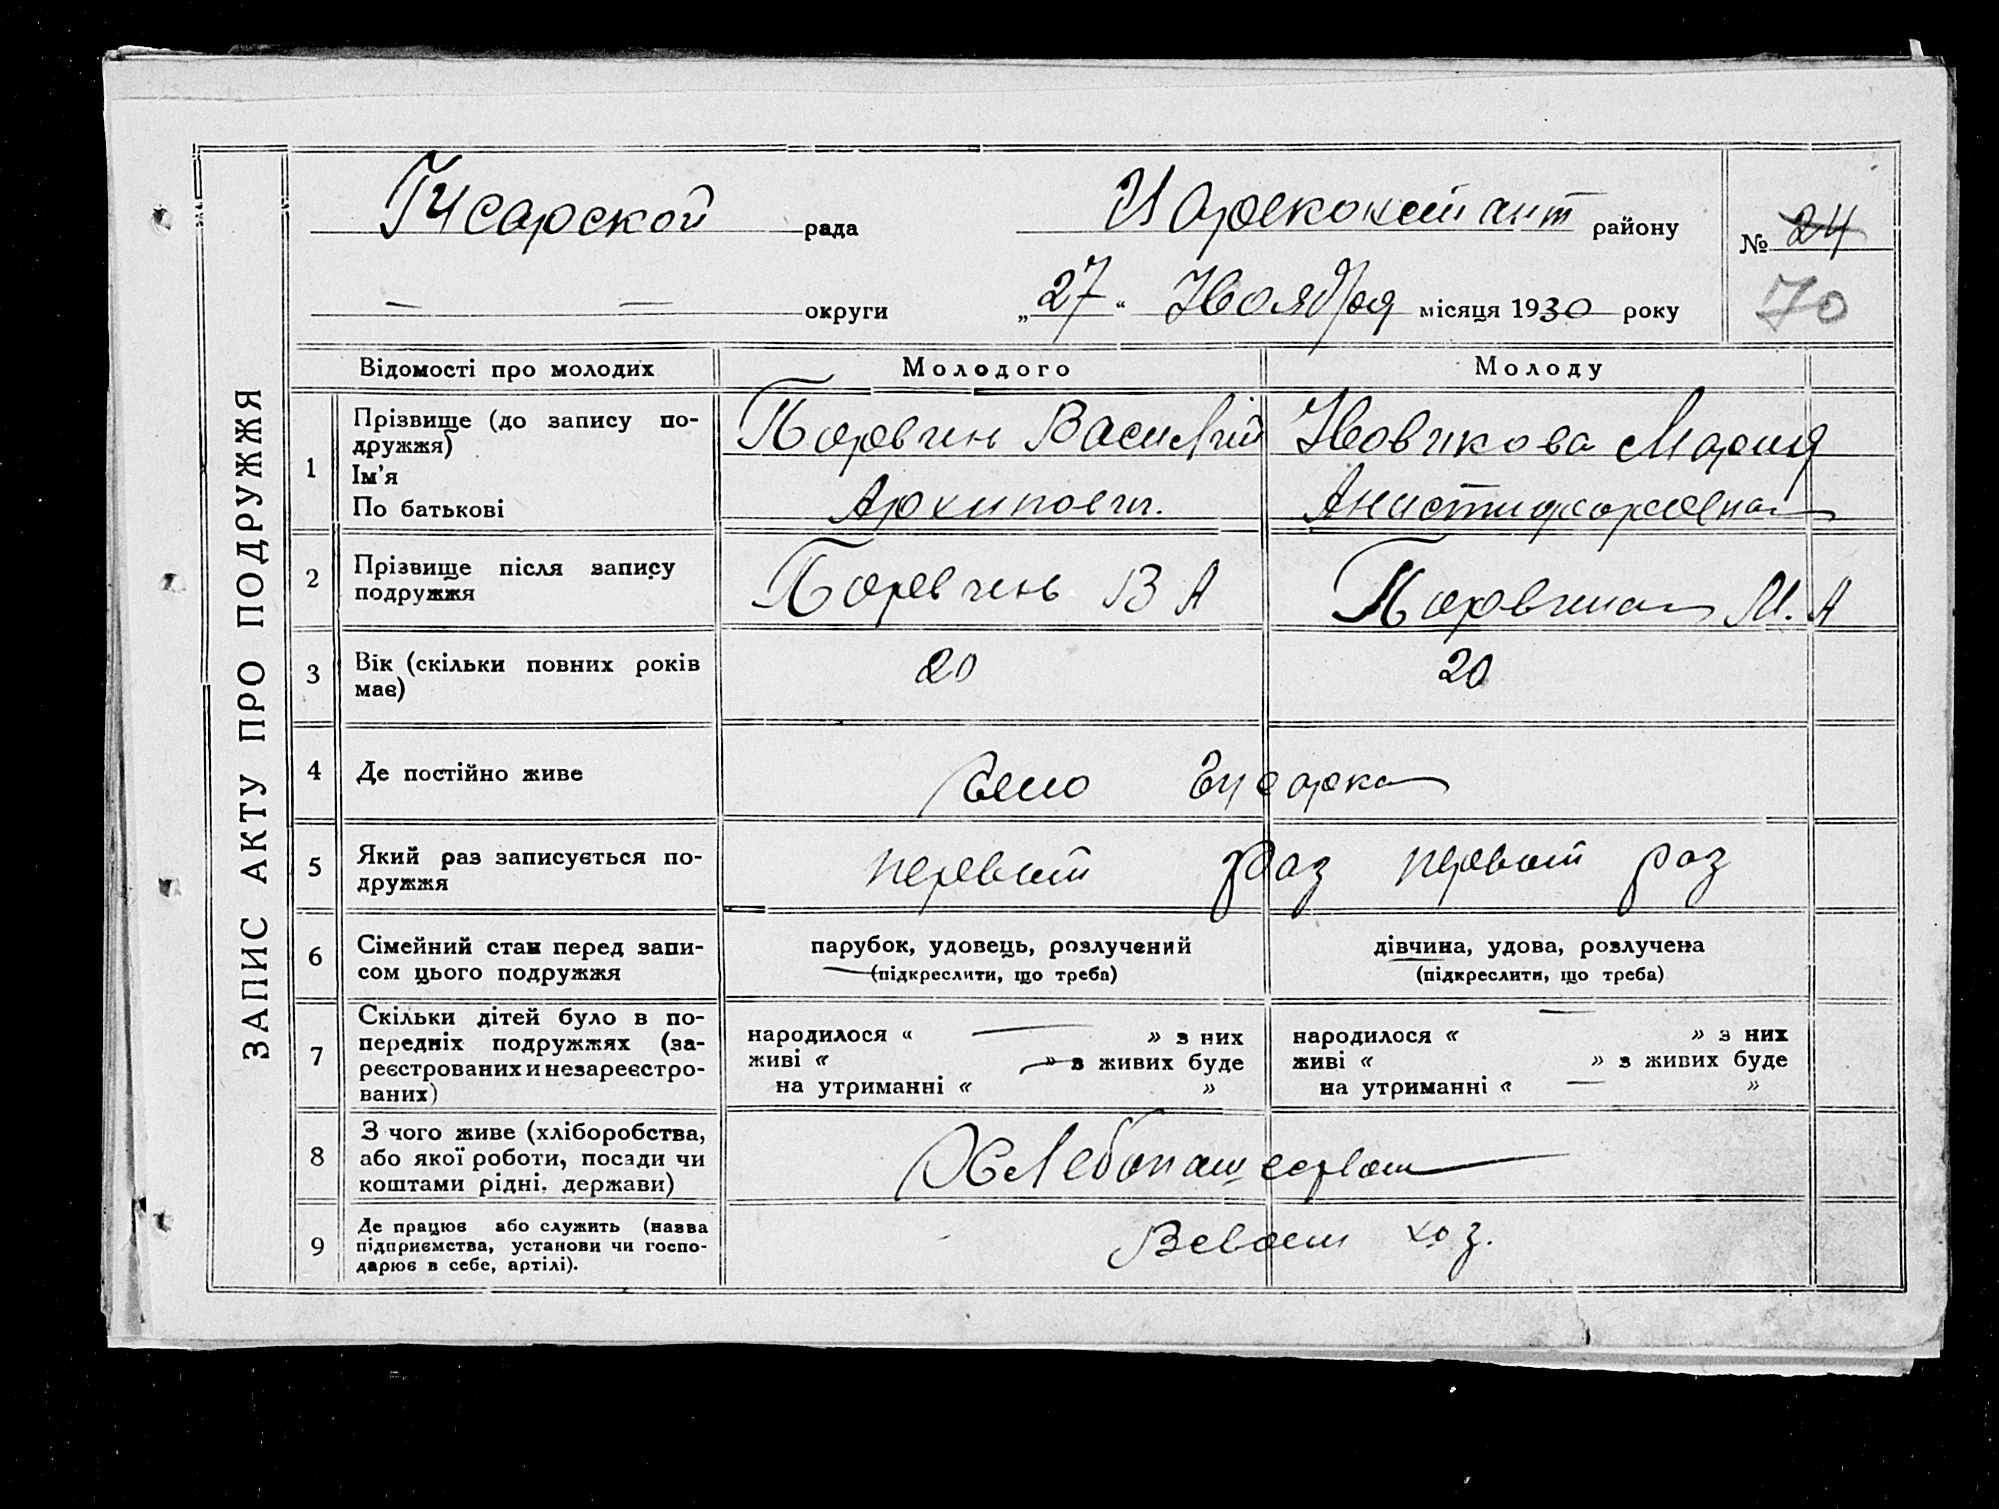 ЗАПИС АКТУ ПРО ПОДРУЖЖЯ
Гусарской рада
району
№ 24
70
— — округи
„27“ Ноября місяця 1930 року
Відомості про молодих
Молодого
Молоду
1
Прізвище (до запису по-
дружжя)
Ім'я
По батькові
Паровчен Василий
Архипович.
Новикова Мария
2
Прізвище після запису
подружжя
В А
М. А
3
Вік (скільки повних років
має)
20
20
4
Де постійно живе
Село Гусарка
5
Який раз записується по-
дружжя
первый раз
первый раз
6
Сімейний стан перед запи-
сом цього подружжя
парубок, удовець, розлучений
(підкреслити, що треба)
дівчина, удова, розлучена
(підкреслити, що треба)
7
Скільки дітей було в по-
передніх подружжях (за-
реєстрованих и незареєстро-
ваних)
народилося « — » з них
живі « — » з живих буде
на утриманні « »
народилося « — » з них
живі « » з живих буде
на утриманні « — »
8
З чого живе (хліборобства,
або якої роботи, посади чи
коштами рідні, держави)
Хлебопашеством
9
Де працює або служить (назва
підприємства, установи чи госпо-
дарює в себе, артілі).
В своем хоз.